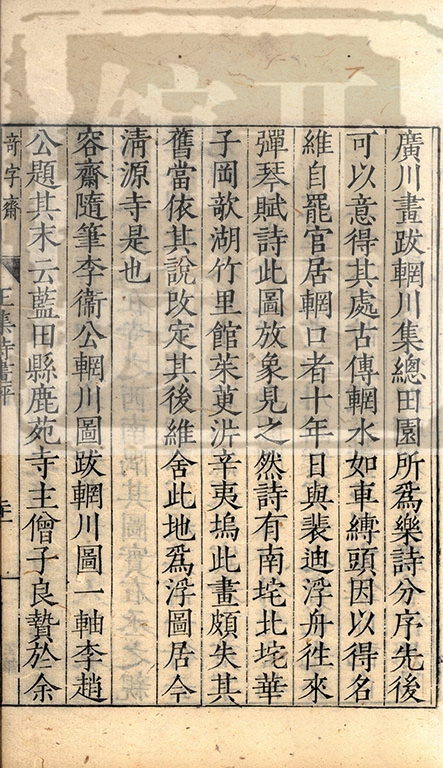 廣川畫跋輞川集總田園所爲樂詩分序先後
可以意得其處古傳輞水如車縛頭因以得名
維自罷官居輞口者十年日與裴迪浮舟徃來
彈琴賦詩此圖放象見之然詩有南垞北垞華
子岡歖湖竹里館茱萸沜辛夷塢此畫頗失其
舊當依其說改定其後維舍此地爲浮圖居今
淸源寺是也
容齋隨筆李衞公輞川圖跋輞川圖一軸李趙
公題其末云藍田縣鹿苑寺主僧子良贄於余
奇字齋
王集詩畫評